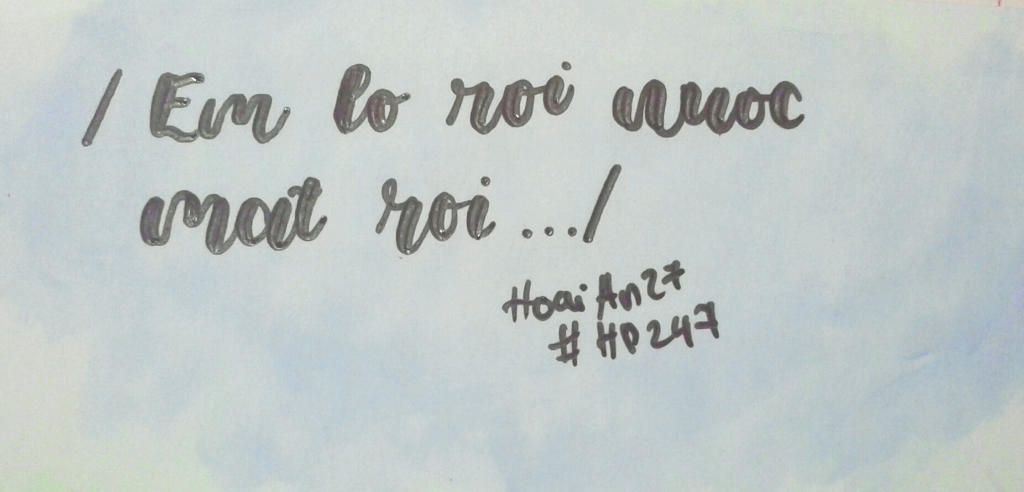 / Em lo roi nuoc
mat roi .../
HoaiAn27
#HP247